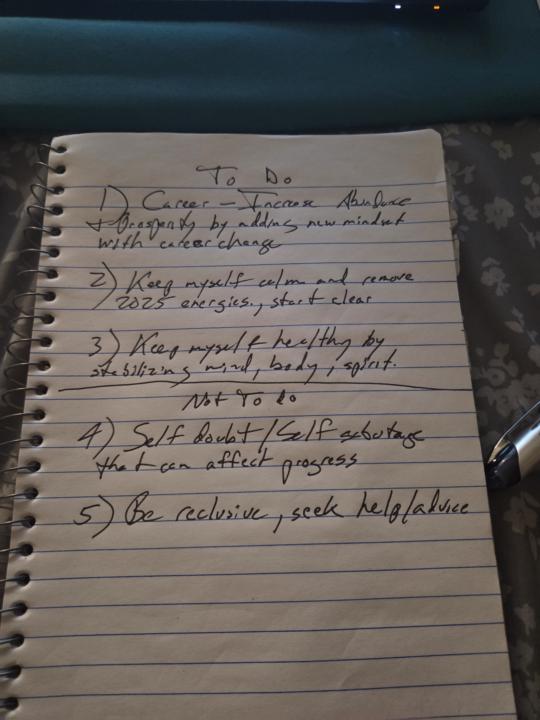 To Do
1) Career - Increase Abundance
+ Prosperity by adding new mindset
with career change
2) Keep myself calm and remove
2025 energies., start clear
3) Keep myself healthy by
stabilizing mind, body, spirit.
Not To do
4) Self doubt/Self sabotage
that can affect progress
5) Be reclusive, seek help/advice